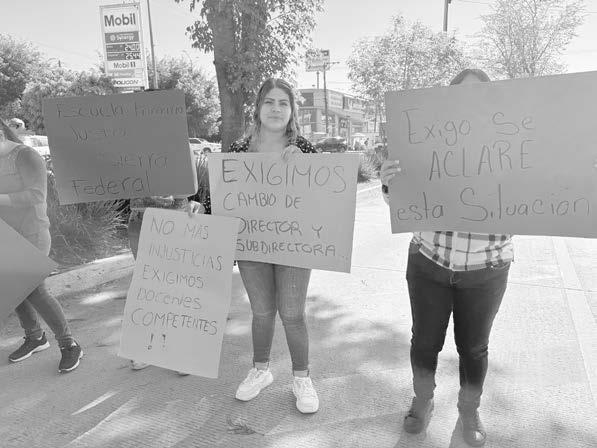 Mobil
Synergy
Mobil
POLICON
Escuela Primaria
Justo
Sierra
Federal
NO MAS
INJUSTICIAS
EXIGIMOS
DOCENTES
COMPETENTES
! !
EXIGIMOS
CAMBIO DE
DIRECTOR Y
SUBDIRECTORA...
Exigo Se
ACLARE
esta Situación